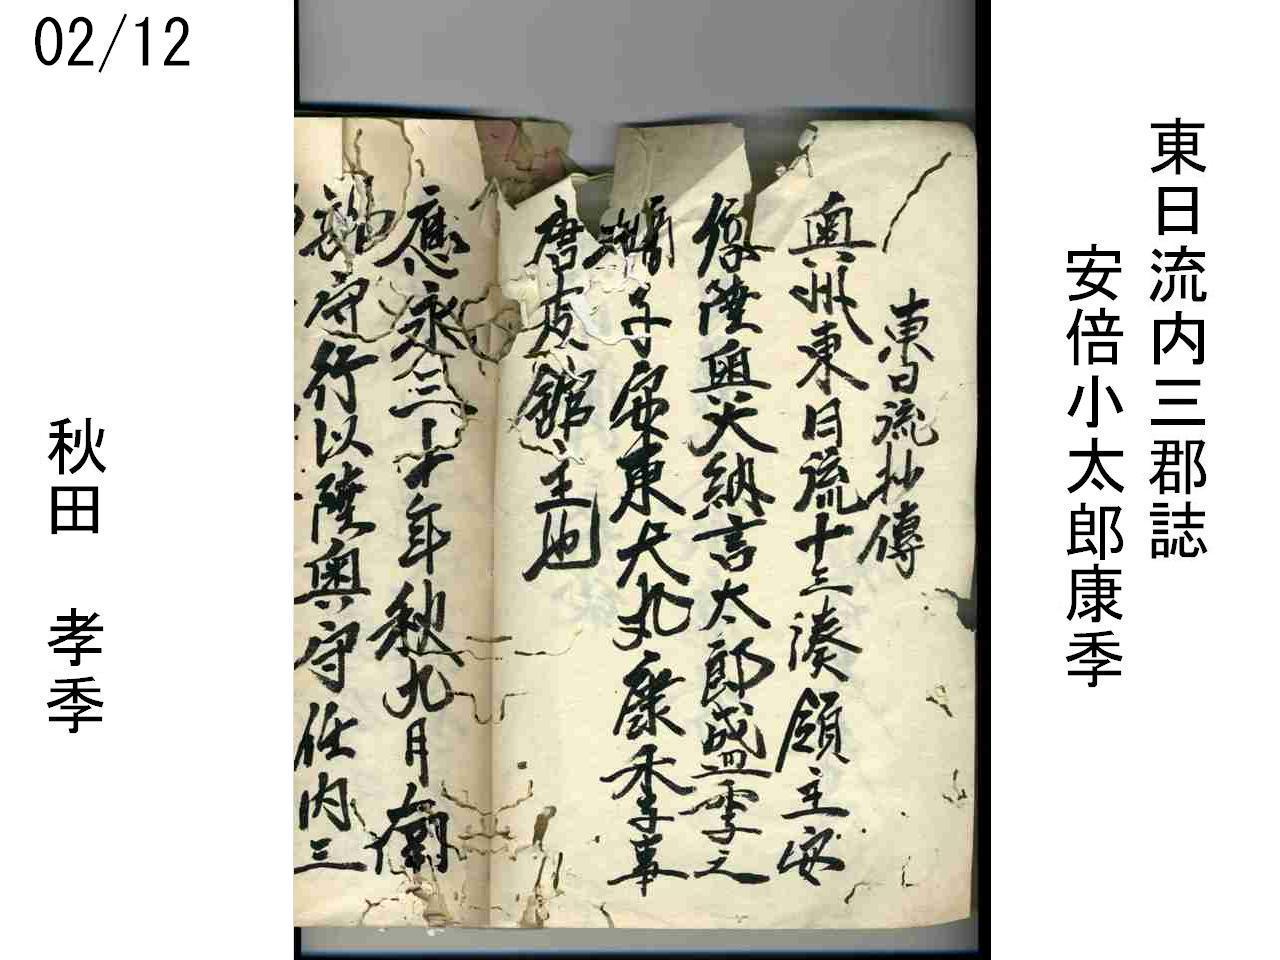 02/12
東日流内三郡誌
安倍小太郎康季
東日流抄傳
奥州東日流十三湊領主安
倍陸奥大納言太郎盛季之
嫡子安東犬丸康季事
唐皮館主也
應永三十年秋九月
守行以陸奥守任内三
秋田 孝季